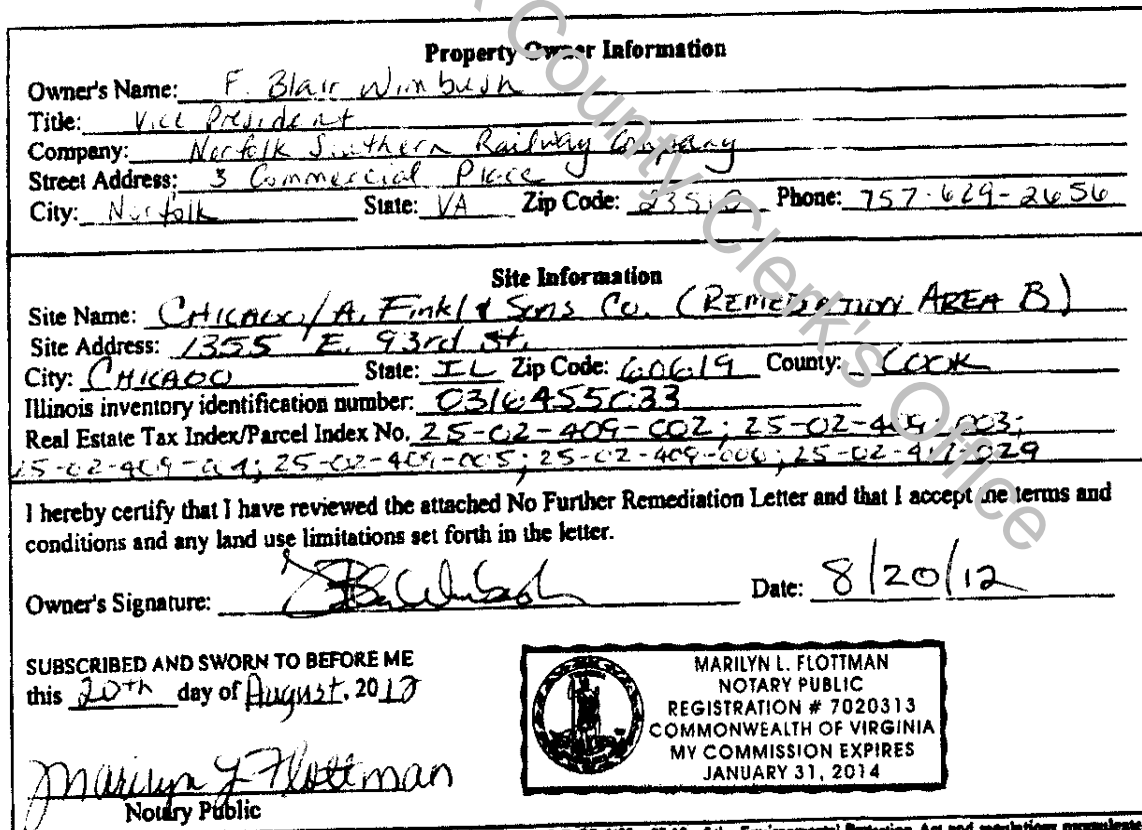 County Clerk's Office
Property Owner Information
Owner's Name: F. Blair Wimbush
Title: Vice President
Company: Norfolk Southern Railway Company
Street Address: 3 Commercial Place
City: Norfolk State: VA Zip Code: 23510 Phone: 757-629-2656
Site Information
Site Name: CHICAGO/A. Finkl & Sons Co. (REMEDIATION AREA B)
Site Address: 1355 E. 93rd St.
City: CHICAGO State: IL Zip Code: 60619 County: COOK
Illinois inventory identification number: 0316455033
Real Estate Tax Index/Parcel Index No. 25-02-409-002; 25-02-409-003;
25-02-409-004; 25-02-409-005; 25-02-409-006; 25-02-417-029
I hereby certify that I have reviewed the attached No Further Remediation Letter and that I accept the terms and
conditions and any land use limitations set forth in the letter.
Owner's Signature: Date: 8/20/12
SUBSCRIBED AND SWORN TO BEFORE ME
this 20th day of August, 2012
MARILYN L. FLOTTMAN
NOTARY PUBLIC
REGISTRATION # 7020313
COMMONWEALTH OF VIRGINIA
MY COMMISSION EXPIRES
JANUARY 31, 2014
Marilyn L Flottman
Notary Public